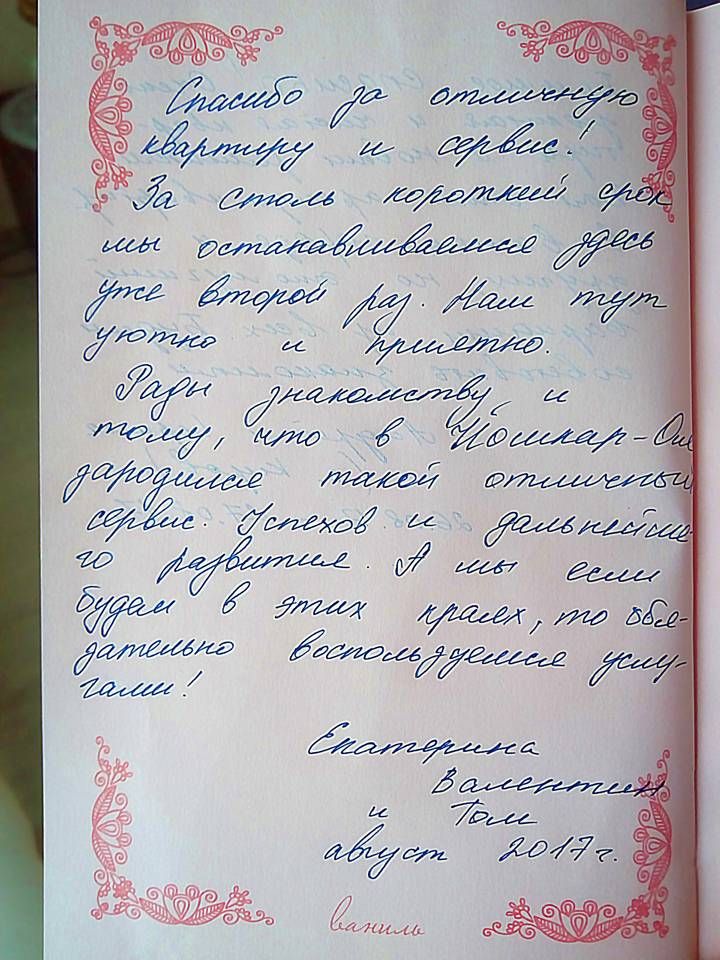 Спасибо за отличную
квартиру и сервис!
За столь короткий срок
мы останавливаемся здесь
уже второй раз. Нам тут
уютно и приятно.
Рады знакомству, и
тому, что в Йошкар-Оле
зародился такой отличный
сервис. Успехов и дальнейше-
го развития. А мы если
будем в этих краях, то обя-
зательно воспользуемся услу-
гами!
Екатерина
Валентин
и Том
август 2017г.
ваниль